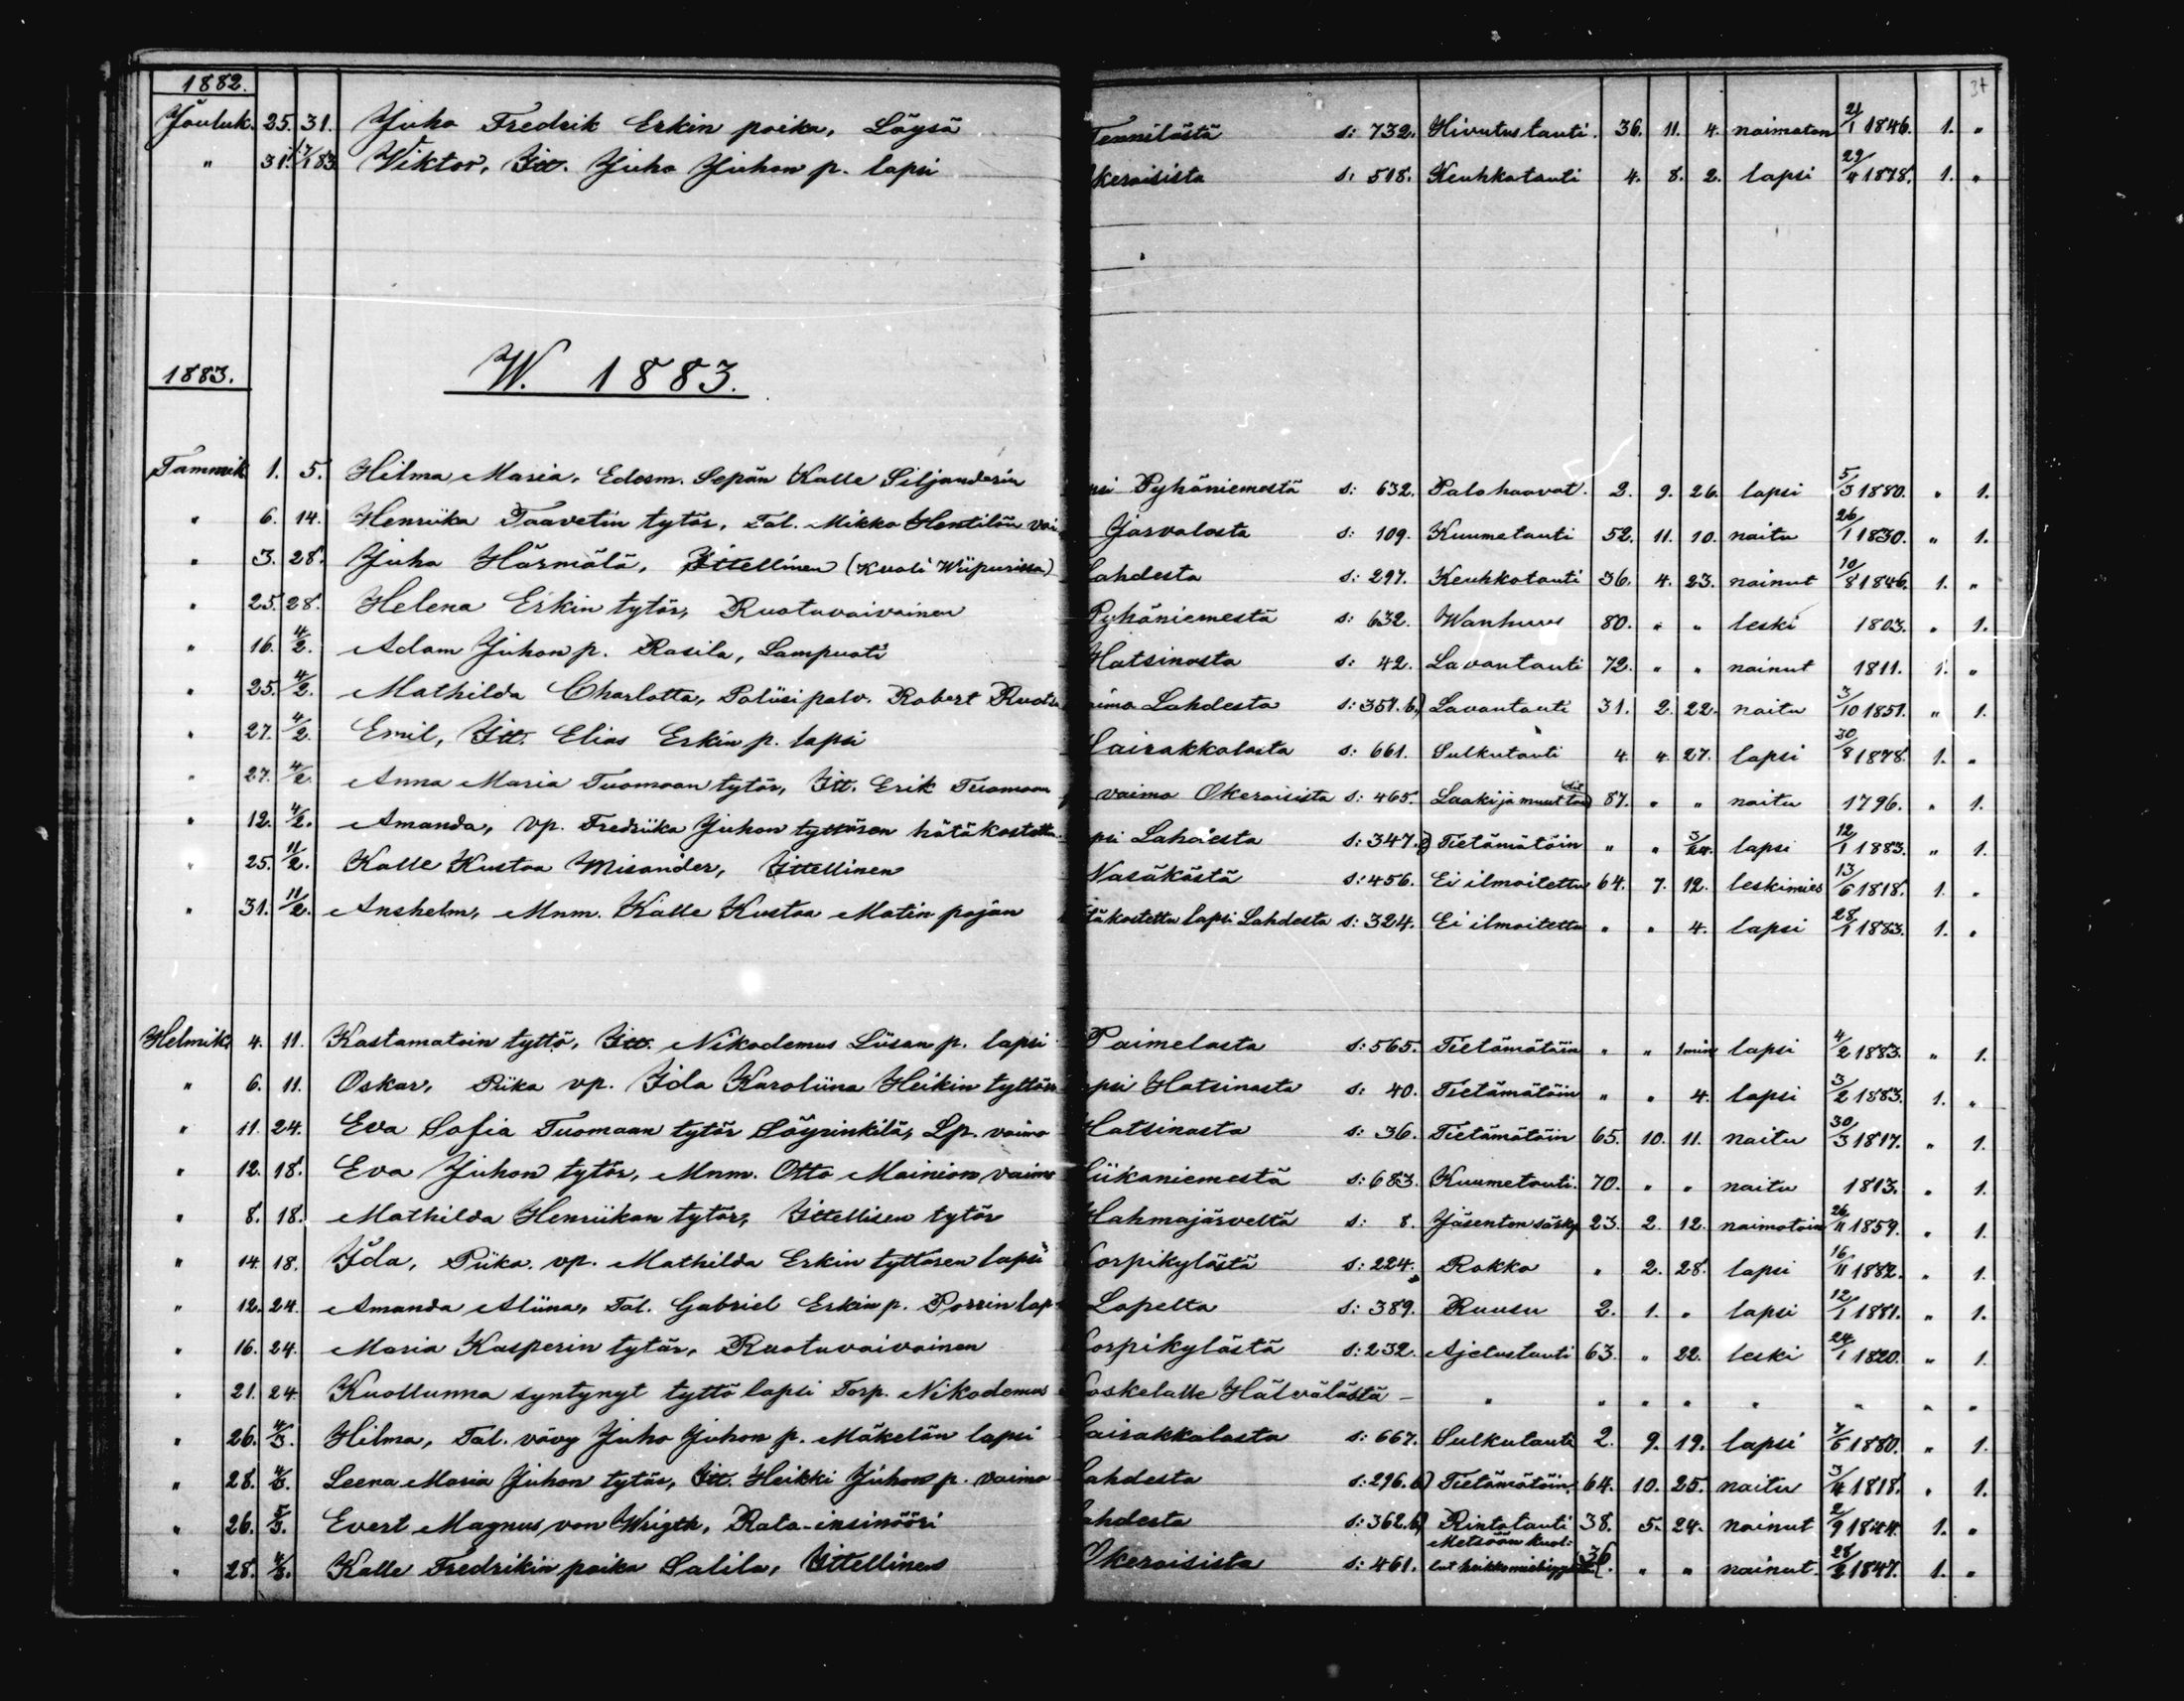 34
1882.
Jouluk. 25. 31. Juho Fredrik Erkin poika, Löysä Tennilästä s: 732. Hivutustauti. 36. 11. 4. naimaton 21/1 1846. 1. "
" 31. 7/1 83 Viktor, Itt. Juho Juhon p. lapsi keroisista s: 518. Keuhkotauti 4. 8. 2. lapsi 29/4 1878. 1. "
1883. W. 1883.
Tammik. 1. 5. Hilma Maria, Edesm. Sepän Kalle Siljanderin psi Pyhäniemestä s: 632. Palohaavat. 2. 9. 26. lapsi 5/3 1880. " 1.
" 6. 14. Henriika Taavetin tytär, Tal. Mikko Hentilän vai Järvalasta s: 109. Kuumetauti 52. 11. 10. naitu 26/1 1830. " 1.
" 3. 28. Juho Härmälä, Ittellinen (Kuoli Wiipurissa) Lahdesta s: 297. Keuhkotauti 36. 4. 23. nainut 10/8 1846. 1. "
" 25. 28. Helena Erkin tytär, Ruotuvaivainen Pyhäniemestä s: 632. Wanhuus 80. " " leski 1803. " 1.
" 16. 4/2. Adam Juhon p. Rasila, Lampuoti Hatsinasta s: 42. Lavantauti 72. " " nainut 1811. 1. "
" 25. 4/2. Mathilda Charlotta, Poliisipalv. Robert Ruots aimo Lahdesta s: 351.b) Lavantauti 31. 2. 22. naitu 3/10 1851. " 1.
" 27. 4/2. Emil, Itt. Elias Erkin p. lapsi Lairakkalasta s: 661. Sulkutauti 4. 4. 27. lapsi 30/8 1878. 1. "
" 27. 4/2. Anna Maria Tuomaan tytär, Itt. Erik Tuomaan vaimo Okeroisista s: 465. Laaki ja muut 87. " " naitu 1796. " 1.
" 12. 4/2. Amanda, vp. Fredrika Juhon tyttären hätäkastettu psi Lahdesta s: 347. Tietämätöin " " 3/24. lapsi 12/1 1883. " 1.
" 25. 11/2. Kalle Kustaa Misander, Ittellinen Nasäkästä s: 456. Ei ilmoitettu 64. 7. 12. leskimies 13/6 1818. 1. "
" 31. 11/2. Anshelm, Mnm. Kalle Kustaa Matin pojan täkastettu lapsi Lahdesta s: 324. Ei ilmoitettu " " 4. lapsi 28/1 1883. 1. "
Helmik. 4. 11. Kastamatoin tyttö, Itt. Nikodemus Liisan p. lapsi Paimelasta s: 565. Tietämätöin " " 1 min lapsi 4/2 1883. " 1.
" 6. 11. Oskar, Piika vp. Ida Karoliina Heikin tyttären psi Hatsinasta s: 40. Tietämätöin " " 4. lapsi 3/2 1883. 1. "
" 11. 24. Eva Sofia Tuomaan tytär Löyrinkilä, Lp. vaimo Hatsinasta s: 36. Tietämätöin 65. 10. 11. naitu 30/3 1817. " 1.
" 12. 18. Eva Juhon tytär, Mnm. Otto Mainion vaimo iikaniemestä s: 683. Kuumetauti. 70. " " naitu 1813. " 1.
" 8. 18. Mathilda Henriikan tytär, Ittellisen tytär Hahmajärveltä s: 8. Jäsenten särky 23. 2. 12. naimatoin 26/11 1859. " 1.
" 14. 18. Ida, Piika. vp. Mathilda Erkin tyttären lapsi orpikylästä s: 224. Rokko " 2. 28. lapsi 16/11 1882. " 1.
" 12. 24. Amanda Aliina, Tal. Gabriel Erkin p. Porrin lap Lapelta s: 389. Ruusu 2. 1. " lapsi 12/1 1881. " 1.
" 16. 24. Maria Kasperin tytär, Ruotuvaivainen orpikylästä s: 232. Ajetustauti 63. " 22. leski 24/1 1820. " 1.
" 21. 24. Kuollunna syntynyt tyttö lapsi Torp. Nikodemus oskelalle Hälvälästä - " " " " " " " "
" 26. 4/3. Hilma, Tal. vävy Juho Juhon p. Mäkelän lapsi airakkalasta s: 667. Sulkutauti 2. 9. 19. lapsi 7/5 1880. " 1.
" 28. 4/3. Leena Maria Juhon tytär, Itt. Heikki Juhon p. vaimo ahdesta s: 296.b) Tietämätöin. 64. 10. 25. naitu 3/4 1818. " 1.
" 26. 5/3. Evert Magnus von Wrigth, Rata-insinööri ahdesta s: 362.b) Rintatauti 38. 5. 24. nainut 2/9 1844. 1. "
" 28. 4/3. Kalle Fredrikin poika Salila, Ittellinen Okeroisista s: 461. Metsään kuol: lut 36. " " nainut. 28/2 1847. 1. "